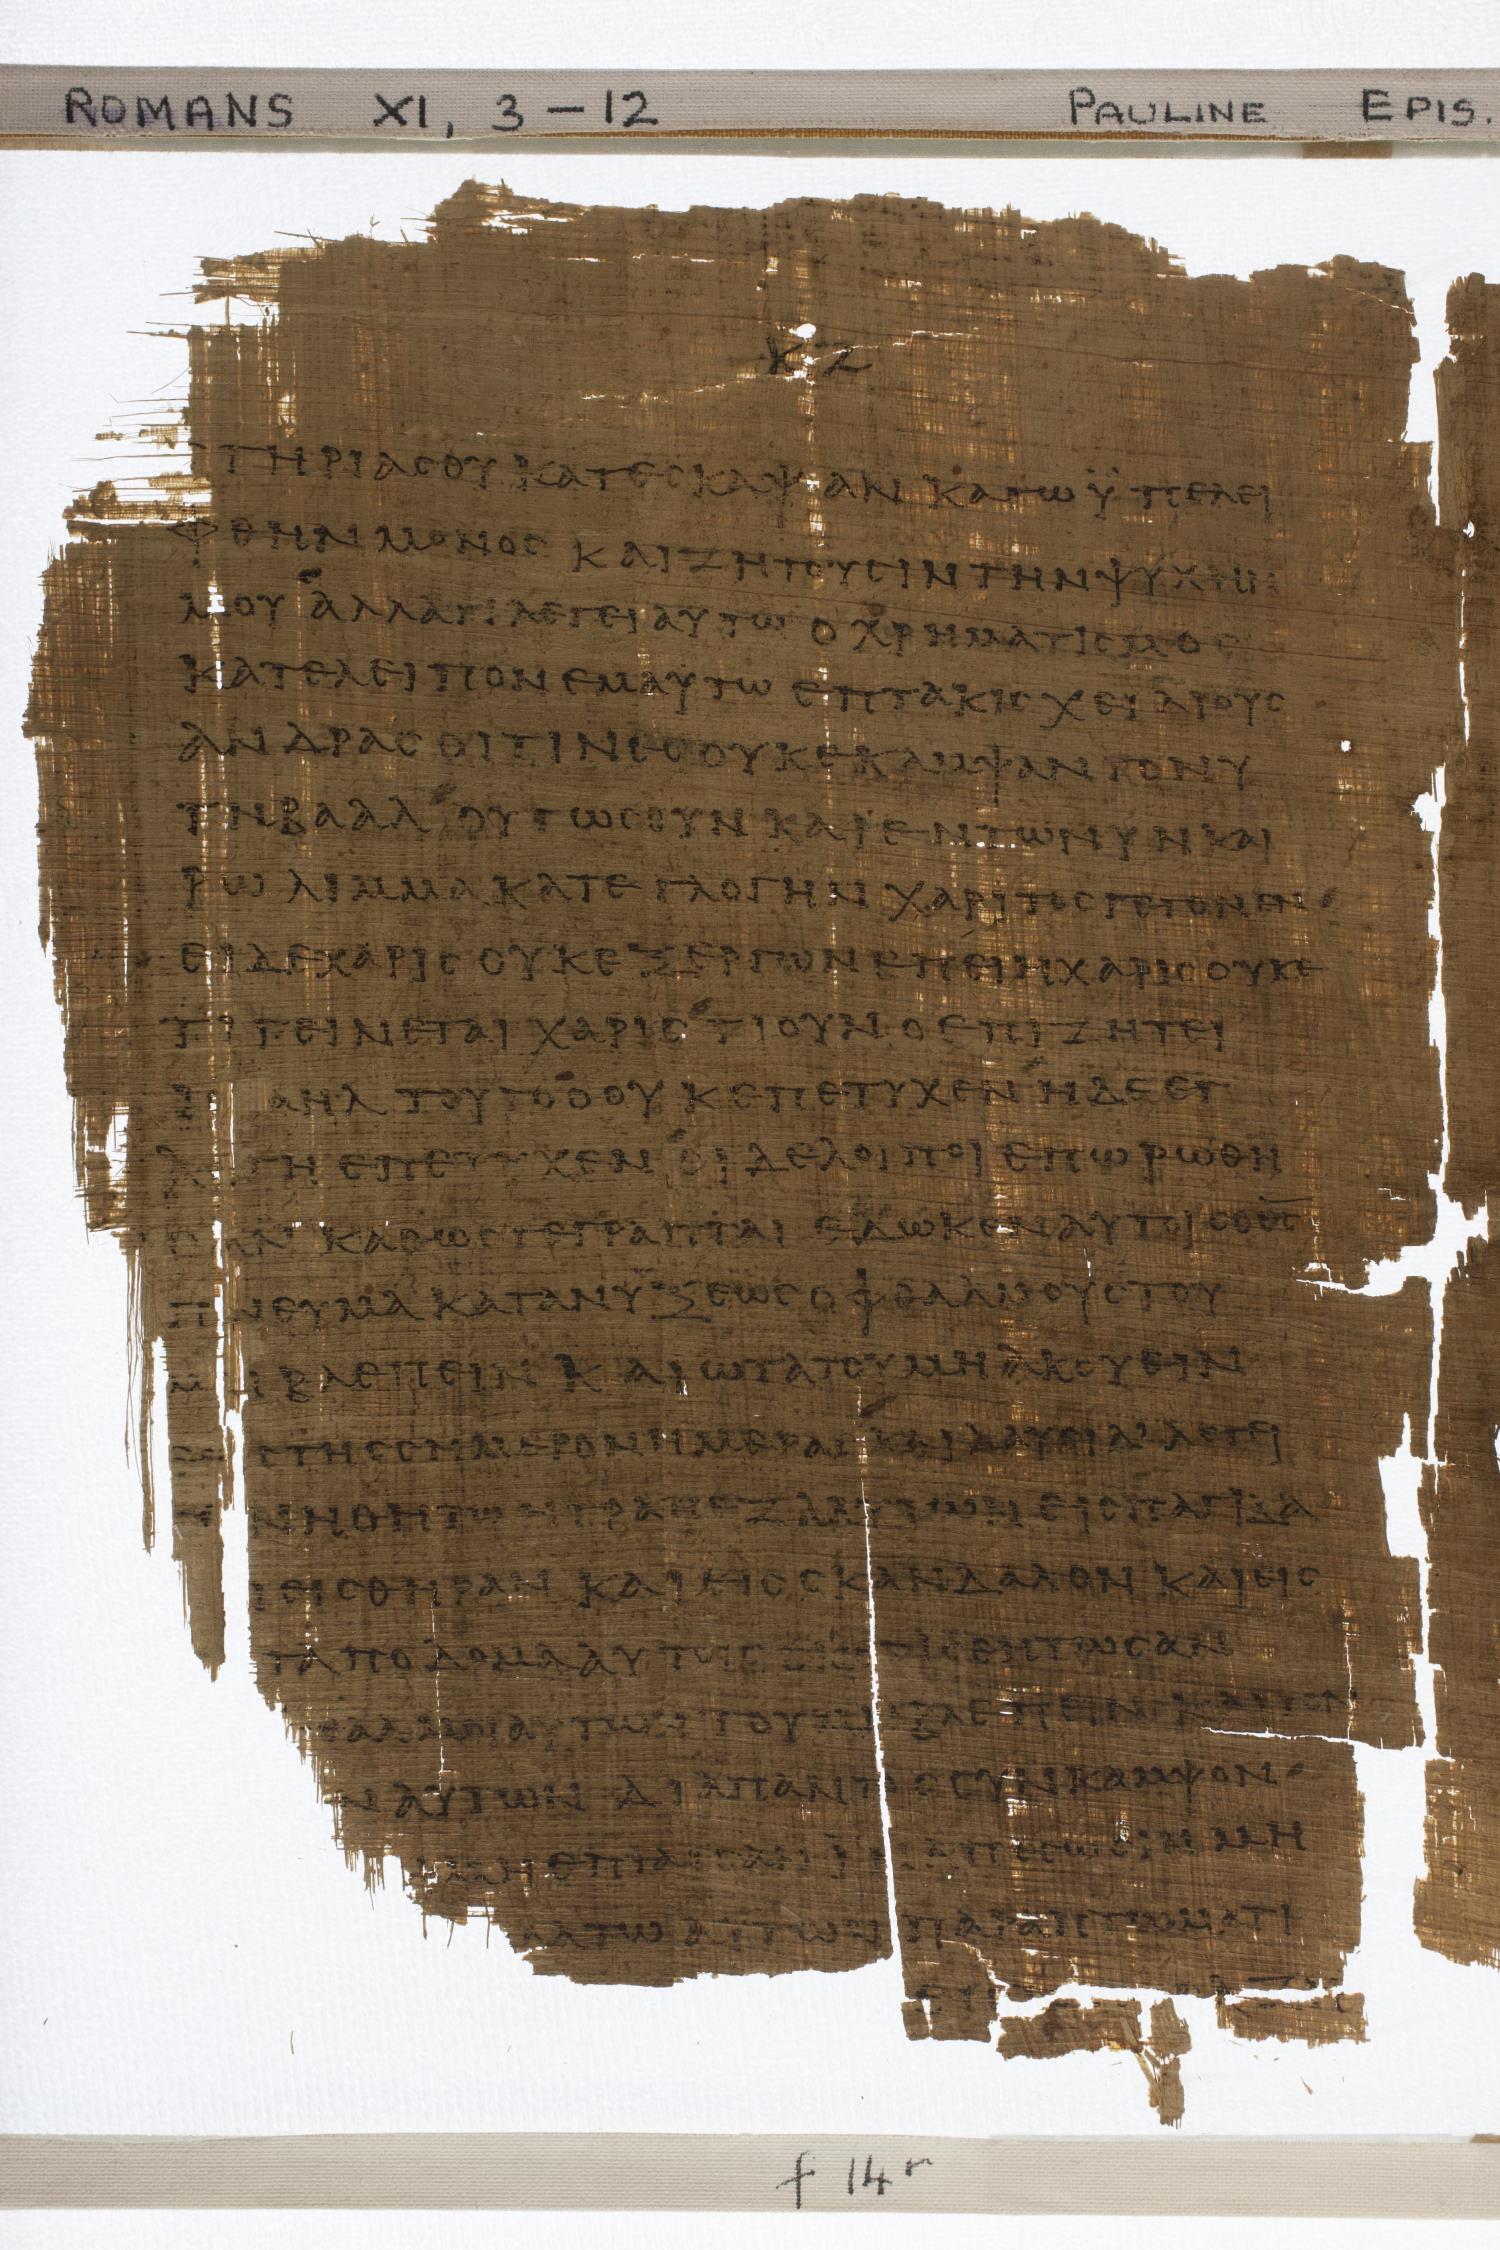 ROMANS XI, 3–12 PAULINE EPIS.
ΚΖ
ΣΤΗΡΙΑ ΣΟΥ ΚΑΤΕΣΚΑΨΑΝ ΚΑΓΩ ΫΠΕΛΕΙ
ΦΘΗΝ ΜΟΝΟΣ ΚΑΙ ΖΗΤΟΥΣΙΝ ΤΗΝ ΨΥΧΗΝ
ΜΟΥ ΑΛΛΑ ΤΙ ΛΕΓΕΙ ΑΥΤΩ Ο ΧΡΗΜΑΤΙΣΜΟΣ
ΚΑΤΕΛΕΙΠΟΝ ΕΜΑΥΤΩ ΕΠΤΑΚΙΣΧΕΙΛΙΟΥΣ
ΑΝΔΡΑΣ ΟΙΤΙΝΕΣ ΟΥΚ ΕΚΑΜΨΑΝ ΓΟΝΥ
ΤΗ ΒΑΑΛ ΟΥΤΩΣ ΟΥΝ ΚΑΙ ΕΝ ΤΩ ΝΥΝ ΚΑΙ
ΡΩ ΛΙΜΜΑ ΚΑΤ ΕΓΛΟΓΗΝ ΧΑΡΙΤΟΣ ΓΕΓΟΝΕΝ
ΕΙ ΔΕ ΧΑΡΙΣ ΟΥΚ ΕΞ ΕΡΓΩΝ ΕΠΕΙ Η ΧΑΡΙΣ ΟΥΚΕ
ΤΙ ΓΕΙΝΕΤΑΙ ΧΑΡΙΣ ΤΙ ΟΥΝ Ο ΕΠΙΖΗΤΕΙ
ΑΗΛ ΤΟΥΤΟ ΟΥΚ ΕΠΕΤΥΧΕΝ Η ΔΕ ΕΓ
ΓΗ ΕΠΕΤΥΧΕΝ ΟΙ ΔΕ ΛΟΙΠΟΙ ΕΠΩΡΩΘΗ
ΣΑΝ ΚΑΘΩΣ ΓΕΓΡΑΠΤΑΙ ΕΔΩΚΕΝ ΑΥΤΟΙΣ Ο ΘΣ
ΠΝΕΥΜΑ ΚΑΤΑΝΥΞΕΩΣ ΟΦΘΑΛΜΟΥΣ ΤΟΥ
ΜΗ ΒΛΕΠΕΙΝ ΚΑΙ ΩΤΑ ΤΟΥ ΜΗ ΑΚΟΥΕΙΝ
ΕΩΣ ΤΗΣ ΣΗΜΕΡΟΝ ΗΜΕΡΑΣ ΚΑΙ ΔΑΥΕΙΔ ΛΕΓΕΙ
ΓΕΝΝΗΘΗΤΩ Η ΤΡΑΠΕΖΑ ΑΥΤΩΝ ΕΙΣ ΠΑΓΙΔΑ
Ι ΕΙΣ ΘΗΡΑΝ ΚΑΙ ΕΙΣ ΣΚΑΝΔΑΛΟΝ ΚΑΙ ΕΙΣ
ΤΑΠΟΔΟΜΑ ΑΥΤΟΙΣ ΣΚΟΤΙΣΘΗΤΩΣΑΝ
ΘΑΛΜΟΙ ΑΥΤΩΝ ΤΟΥ ΜΗ ΒΛΕΠΕΙΝ ΚΑΙ ΤΟΝ
Ν ΑΥΤΩΝ ΔΙΑ ΠΑΝΤΟΣ ΣΥΝΚΑΜΨΟΝ
ΜΗ ΕΠΤΑΙΣΑΝ ΪΝΑ ΠΕΣΩΣΙΝ ΜΗ
ΑΛΛΑ ΤΩ ΑΥΤΩΝ ΠΑΡΑΠΤΩΜΑΤΙ
f 14 r